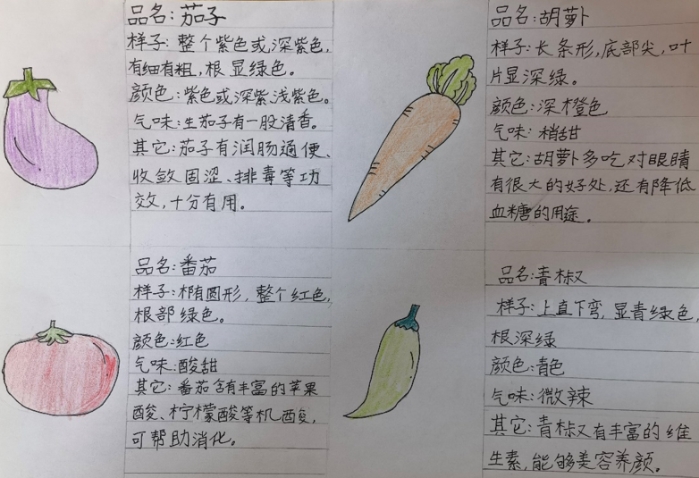 品名:茄子
样子:整个紫色或深紫色,
有细有粗,根显绿色。
颜色:紫色或深紫浅紫色。
气味:生茄子有一股清香。
其它:茄子有润肠通便、
收敛固涩、排毒等功
效,十分有用。
品名:胡萝卜
样子:长条形,底部尖,叶
片显深绿。
颜色:深橙色
气味:稍甜
其它:胡萝卜多吃,对眼睛
有很大的好处,还有降低
血糖的用途。
品名:番茄
样子:椭圆形,整个红色,
根部绿色。
颜色:红色
气味:酸甜
其它:番茄含有丰富的苹果
酸、柠檬酸等机酸,
可帮助消化。
品名:青椒
样子:上直下弯,显青绿色,
根深绿
颜色:青色
气味:微辣
其它:青椒又有丰富的维
生素,能够美容养颜。